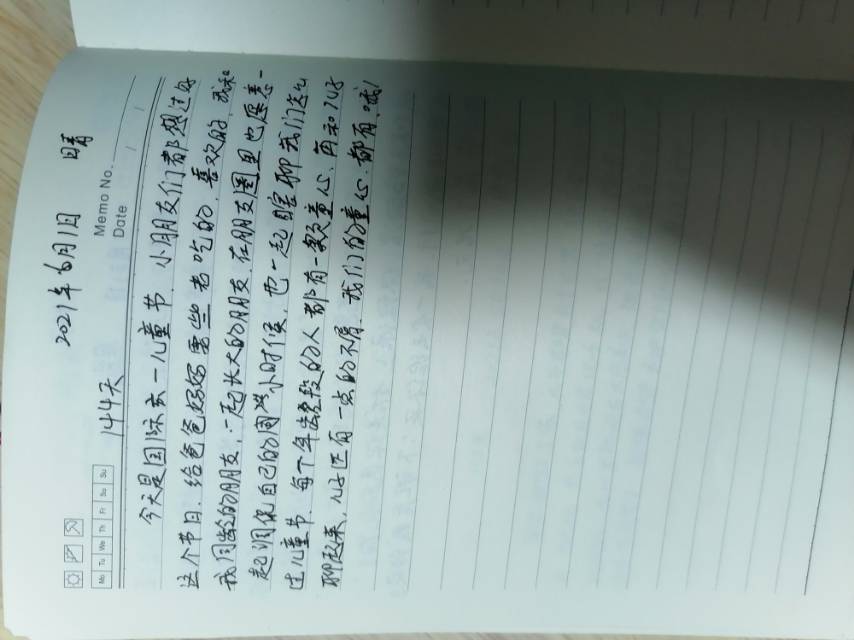 2021年6月1日 晴
Memo No.
144天
Mo Tu We Th Fr Sa Su
Date / /
今天是国际六一儿童节、小朋友们都想过好
这个节日、给爸爸妈妈要些老吃的、喜欢的、我和
我同龄的朋友、一起长大的朋友、在朋友圈里也愿意一
起调侃自己的周岁小时候、也一起瞎聊我们怎么
过儿童节、每个年龄段的人都有一颗童心、再和儿子
聊起来、儿子还有一点的不屑、我们的童心、都有哦!